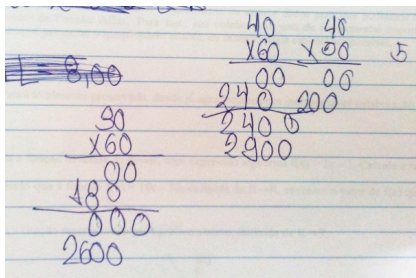 40 40
x60 x50 5
00 00
240 200
2400
2900
8,00
30
x60
00
180
000
2600